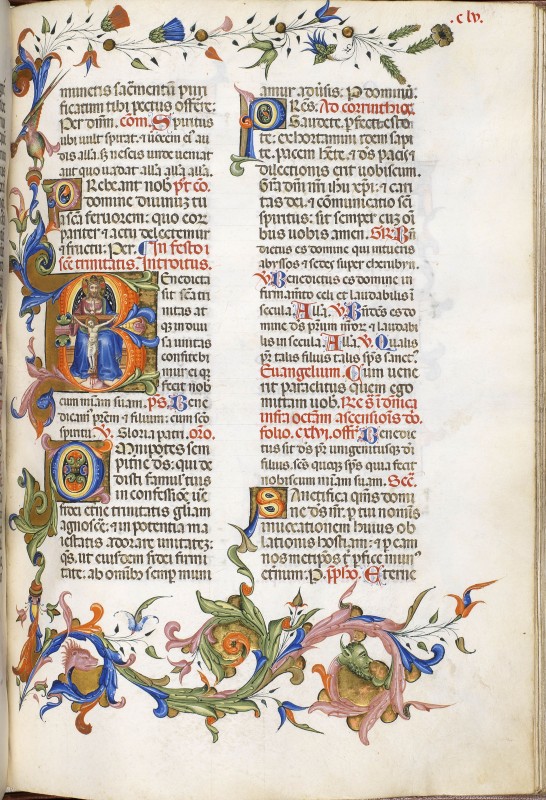 .clv.
muneris sacr̃mentũ puri
ficatum tibi pectus offerre:
Per dñm. cõm. Spiritus
ubi uult spirat: ⁊ uocem ei' au
dis alla. ⁊ nescis unde ueniat
aut quo uadat alla alla alla.
PRebeant nob̃ pʳt cõ.
domine diuinũ tu
sc̃a feruorem: quo eor
pariter ⁊ actu delectemur
⁊ fructu: Per. In festo s
sc̃e trinitatis. Introitus.
BEnedicta
sit sc̃a tri
nitas at
q̃ indiui
sa unitas
confitebi
mur ei q̃
fecit nob
cum mĩam suam. ps. Bene
dicam' pr̃em ⁊ filium: cum sc̃o
spiritu. V. Gloria patri. oro.
OMnipotens sem
piterne ds̃: qui de
disti famulis tuis
in confessiõe ue
fidei eterne trinitatis gl̃am
agnosce: ⁊ in potentia ma
iestatis adorare unitatez:
q̃s. ut eiusdem fidei firmi
tate: ab omibz semp muni
amur aduersis: P dominũ.
Res. Ad corinthios.
Gaudete. pfecti esto
te: exhortamini idem sapi
te. pacem hẽte. ⁊ ds̃ pacis ⁊
dilectionis erit uobiscum.
Gr̃a dñi nr̃i ihu xp̃i: ⁊ cari
tas dei. ⁊ cõmunicatio sc̃i
spiritus: sit semper cuz oĩ
bus uobis amen. GR. Bñ
dictus es domine qui intueris
abyssos ⁊ sedes super cherubin.
V. Benedictus es domine in
firmamẽto celi et laudabilis ĩ
secula. Alla. V. Bñdc̃s es do
mine ds̃ prũm nr̃or ⁊ laudabi
lis in secula. Alla. V. Qualis
pr̃ talis filius talis sp̃s sanct'.
Euangelium. Cum uene
rit paraclitus quem ego
mittam uob. Re s ĩ dñica
infra octam ascensiõis dõ.
folio. cxlvi. offr̃. Benedic
tus sit ds̃ pr̃ unigenitusq̃ dĩ
filius. sc̃s quoq̃ sp̃s quia fecit
nobiscum mĩam suam. Sec̃.
SAnctifica q̃s dom̃
ne ds̃ nr̃. p tui nomĩs
inuocationem huius ob
lationis hostiam: ⁊ p eam
nos metip̃os t̃ pfice mun'
eternum. P. Eterne